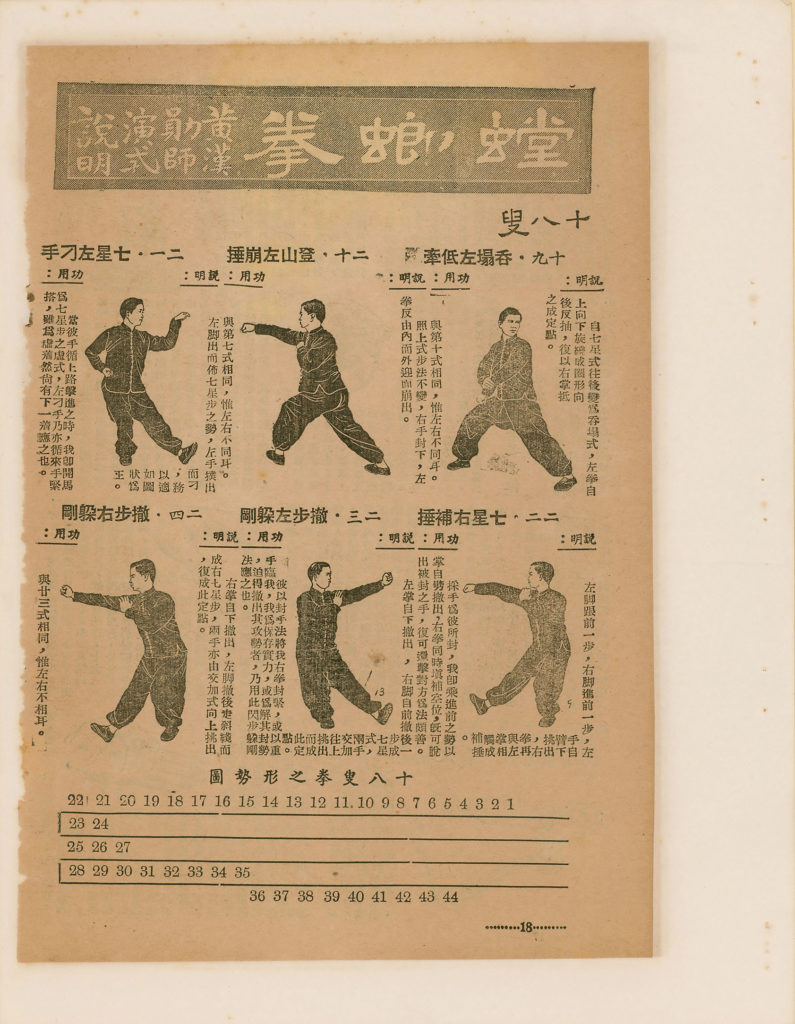 螳螂拳
黃漢
勛師
演式
說明
十八叟
十九・吞塌左低牽
說明：
自七星式往後變為吞塌式，左拳自
上向下旋轉成圈形向
後反抽，復以右掌抵
之成定點。
功用：
與第十式相同，惟左右不同耳。
二十・登山左崩捶
說明：
照上式步法不變，右手封下，左
拳反由內而外迎面崩出。
功用：
與第七式相同，惟左右不同耳。
二一・七星左刁手
說明：
左脚出而佈七星步之勢，左手撲出
而刁
，務
以適
如圖
狀為
王。
功用：
當彼手循上路擊進之時，我卽開馬
為七星步之虛式，左刁手乃亦循來手緊
搭，雖為虛着然尚有下一着應之也。
二二・七星右補捶
說明：
左脚跟前一步，右脚進前一步，左
手自
臂下
挑出
，右
拳再
與左
掌相
觸成
補捶
。
功用：
採手為彼所封，我卽乘進前之勢以
掌自劈撤出，右拳同時塡補空位，旣可說
出被封之手，復可還擊對方為法頗善。
二三・撤步左躱剛
說明：
左掌自下撤出，右脚自前撤後一
步成
七星
式，
兩手
交加
往上
挑出
而成
此定
點。
功用：
彼以封手法將我右拳封緊，或以重
手臨我，我為保存實力，或為解其封勢
，迫得撤出其攻勢者，乃用此閃步躱剛
法應之也。
二四・撤步右躱剛
說明：
右掌自下撤出，左脚撤後走斜綫而
成右七星步，兩手亦由交加式向上挑出
，復成此定點。
功用：
與廿三式相同，惟左右不相耳。
13
9
十八叟拳之形勢圖
22 21 20 19 18 17 16 15 14 13 12 11 10 9 8 7 6 5 4 3 2 1
23 24
25 26 27
28 29 30 31 32 33 34 35
36 37 38 39 40 41 42 43 44
………18………